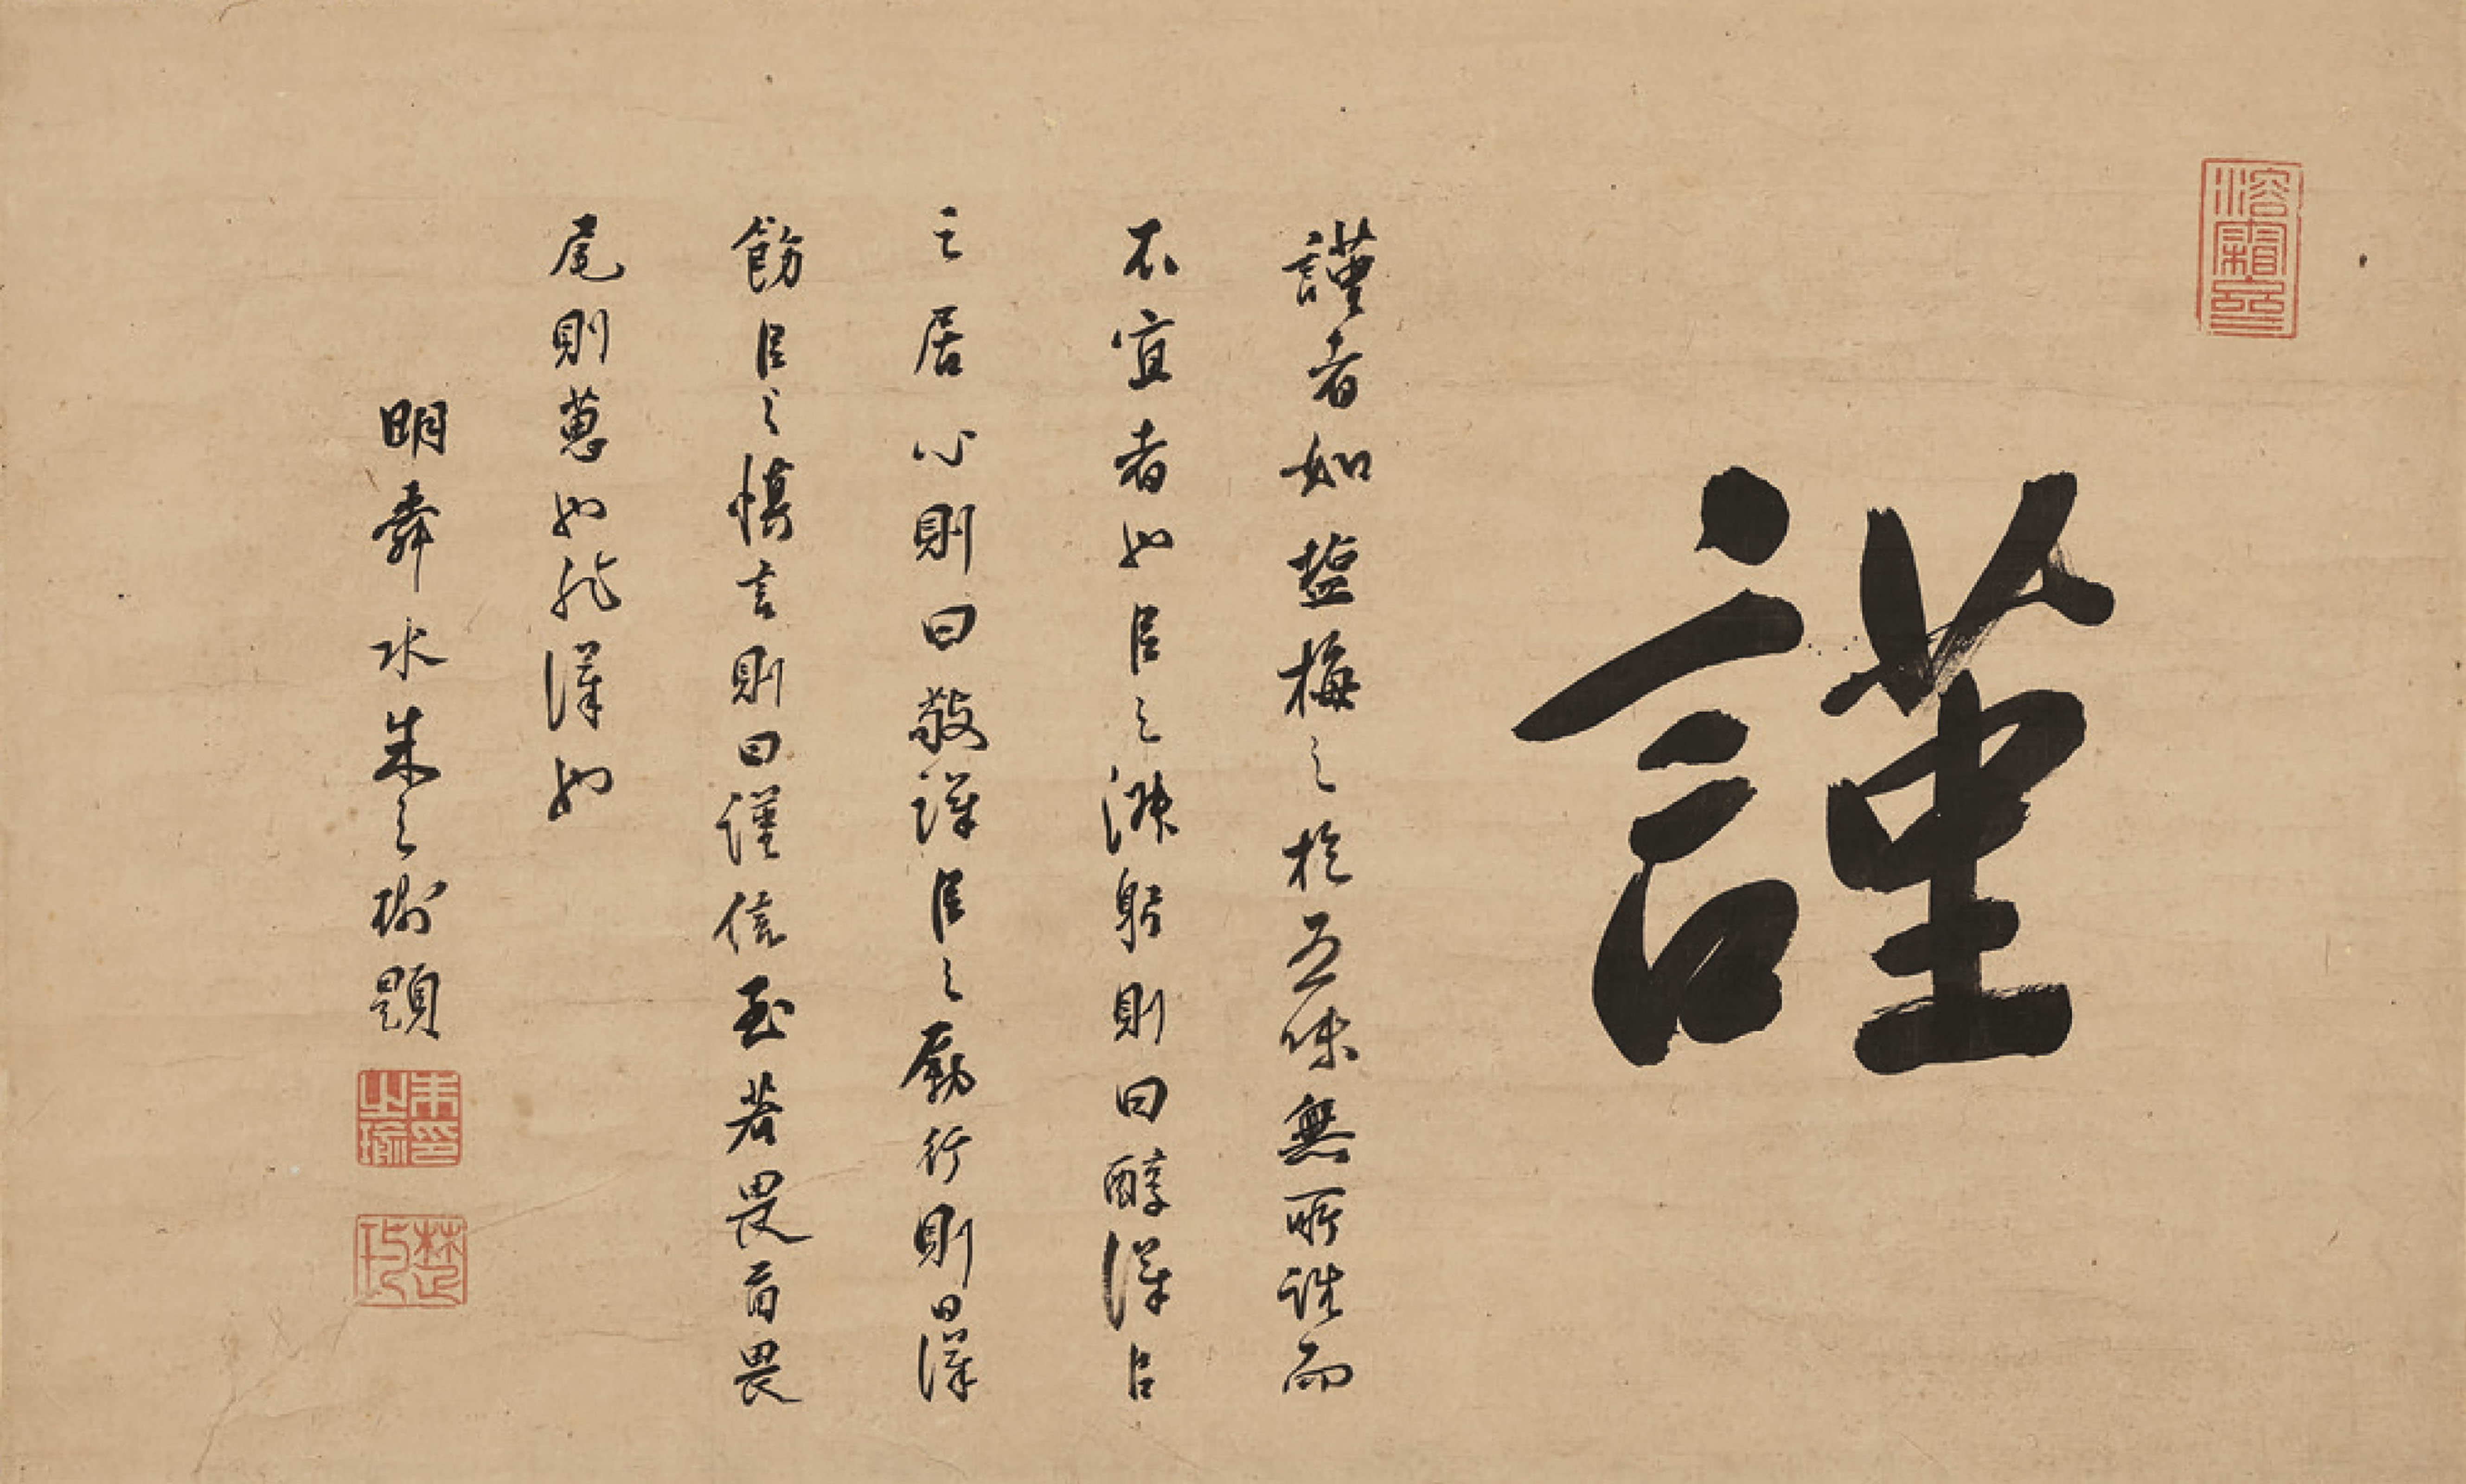 謹
謹者如塩梅之於五味無所而
不宜者也㠯之淑躬則曰醇謹㠯
之居心則曰敬謹㠯之勵行則曰謹
飭㠯之慎言則曰謹信至若畏首畏
尾則葸也非謹也
明舜水朱之瑜題
朱之瑜印